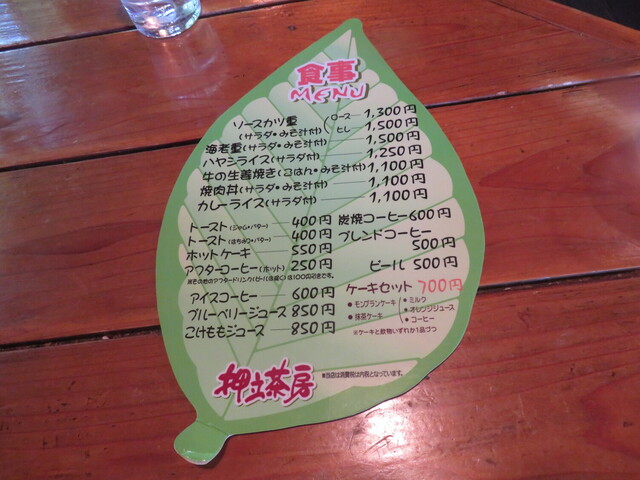 食事
MENU
ソースカツ重 (ロース 1,300円
(サラダ・みそ汁付) ヒレ 1,500円
海老重(サラダ・みそ汁付) 1,500円
ハヤシライス(サラダ付) 1,250円
牛の生姜焼き(ごはん・みそ汁付) 1,100円
焼肉丼(サラダ・みそ汁付) 1,100円
カレーライス(サラダ付) 1,100円
トースト(ジャム・バター) 400円
トースト(はちみつ・バター) 400円
ホットケーキ 550円
アフターコーヒー(ホット) 250円
※その他のアフタードリンク(ビールは除く)は100円引きです。
アイスコーヒー 600円
ブルーベリージュース 850円
こけももジュース 850円
炭焼コーヒー 600円
ブレンドコーヒー
500円
ビール 500円
ケーキセット 700円
・モンブランケーキ
・抹茶ケーキ
・ミルク
・オレンジジュース
・コーヒー
※ケーキと飲物いずれか1品づつ
■当店は消費税は内税となっています。
押土茶房